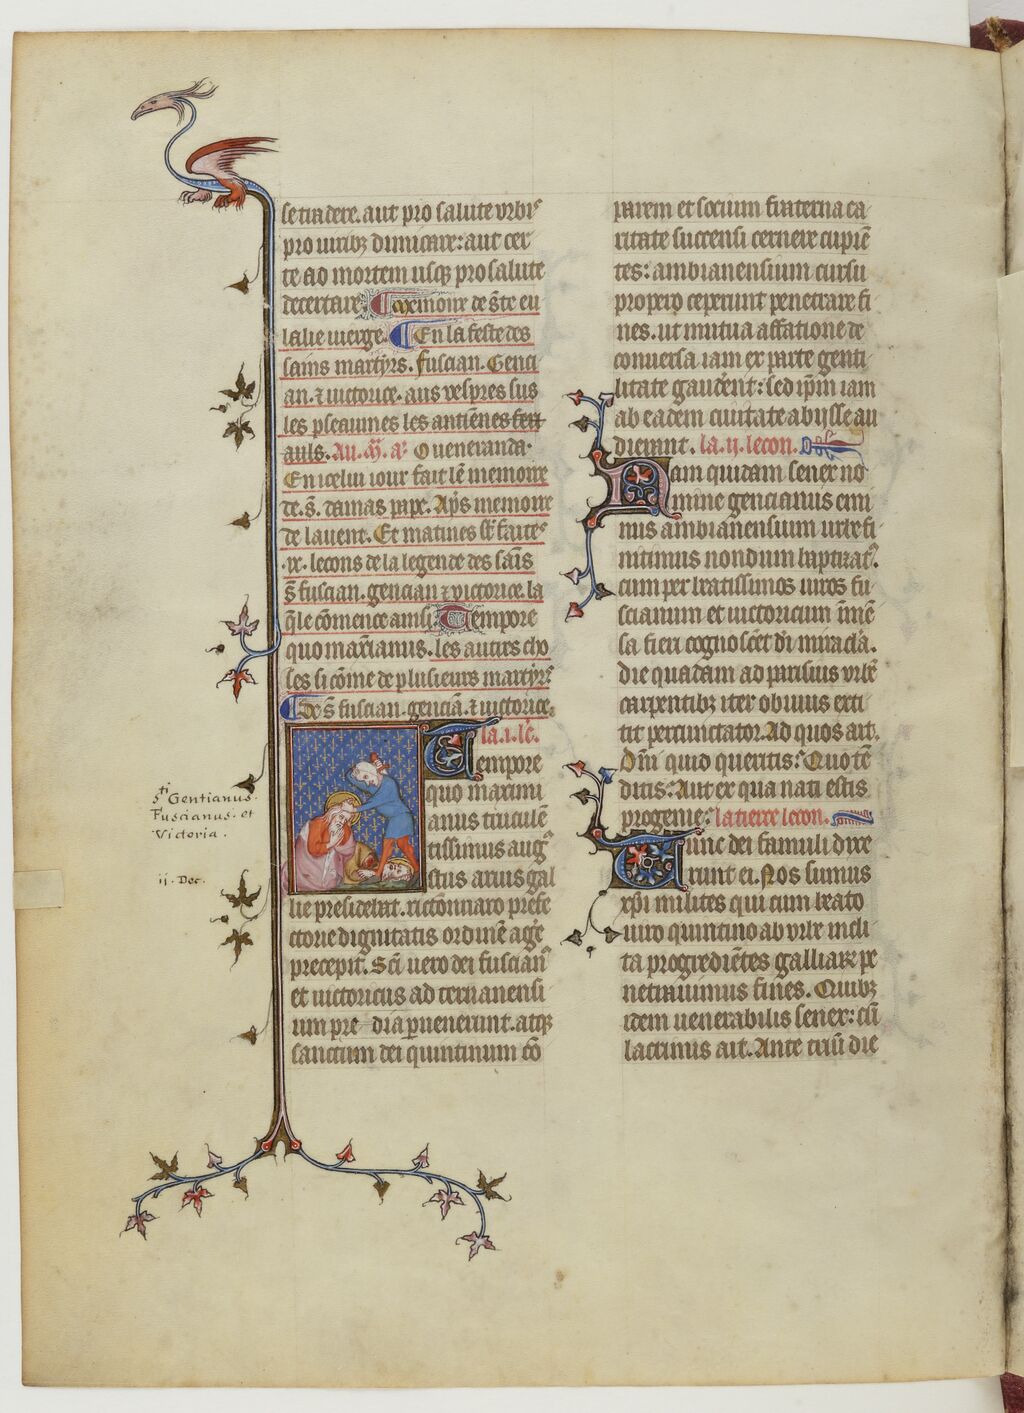 setradere. aut pro salute vrbis
pro uiribꝫ dimicare: aut cer
te ad mortem usqꝫ pro salute
decertare. Memoire de ste eu
lalie vierge. En la feste des
sains martyrs. fuscian. Genci
an. ⁊ uictorice. aus vespres sus
les pseaumes les antienes feri
auls. Au. M. a. O ueneranda.
En icelui iour fait len memoire
de. s. damas pape. Aps memoire
de lauent. Et matines st faites
.ix. lecons de la legende des sais
s fuscian. gencian ⁊ victorice. la
qle comence ainsi. Tempore
quo maxianus. les autres cho
ses si come de plusieurs martyrs
De s fuscian. gencia. ⁊ uictorice.
la .i. le.
Tempore
quo maximi
anus truculē
tissimus augꝰ
stus arius gal
lie presidebat. rictionaro prefe
ctorie dignitatis ordinē agē
precepit. Sci uero dei fuscianꝰ
et uictoricus ad teruanensi
um pre dia puenerunt. atqꝫ
sanctum dei quintinum cō
sti Gentianus.
Fuscianus. et
Victoria.
ii. Dec.
parem et socium fraterna ca
ritate succensi cernere cupiē
tes: ambianensium cursu
propero ceperunt penetrare fi
nes. ut mutua affatione de
conuersa iam ex parte genti
litate gauderent: sed ipm iam
ab eadem ciuitate abijsse au
dierunt. la .ij. lecon.
Nam quidam senex no
mine gencianus emi
nus ambianensium urbe fi
nitimus nondum baptizatꝰ.
cum per beatissimos uiros fu
scianum et uictoricum imē
sa fieri cognosceret di miracla.
die quadam ad parisius urbē
carpentibꝫ iter obuius exti
tit percunctator. Ad quos ait.
Dni quid queritis: Quo tē
ditis: Aut ex qua nati estis
progenie: la tierce lecon.
Tunc dei famuli dixe
runt ei. Nos sumus
xpi milites qui cum beato
uiro quintino ab vrbe incli
ta progrediētes galliarꝫ pe
netrauimus fines. Quibꝫ
idem uenerabilis senex: cū
lacrimis ait. Ante triū die